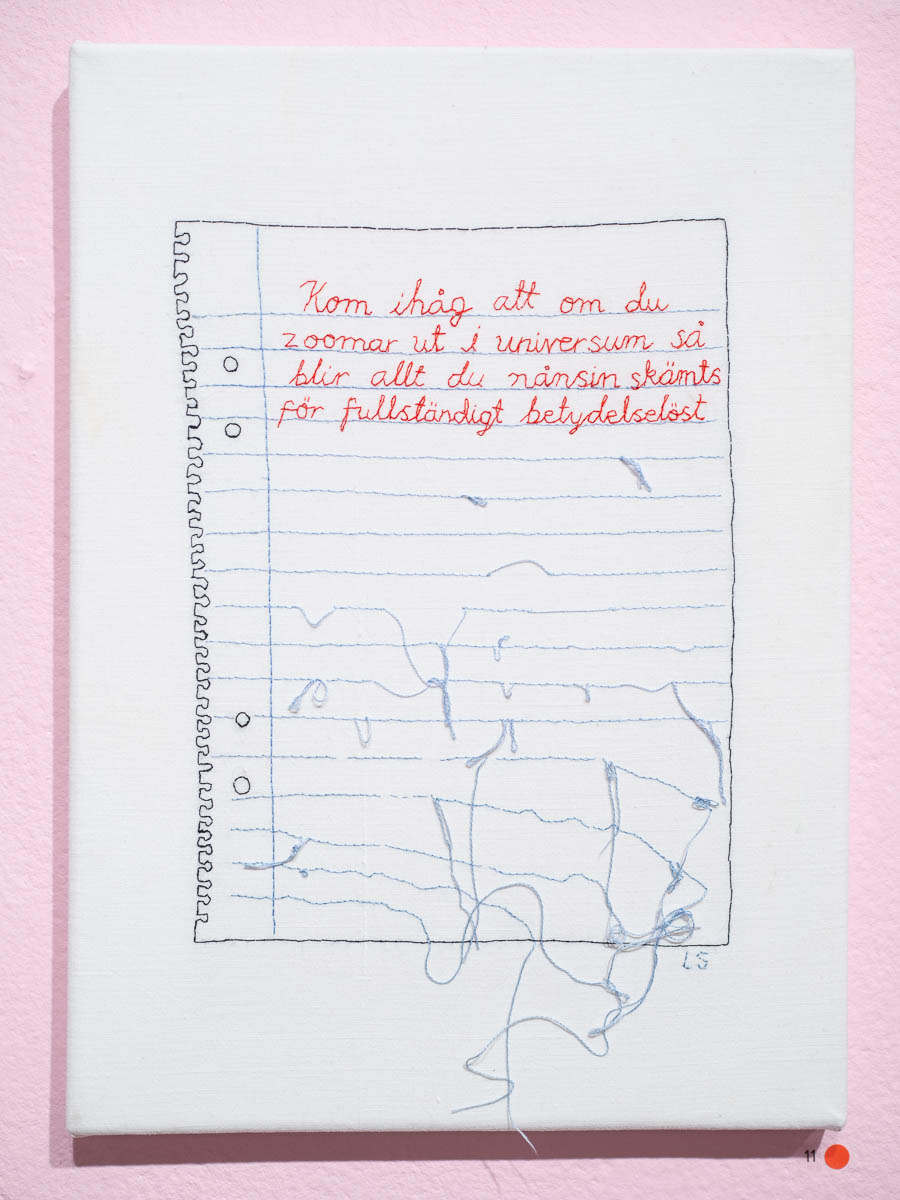 Kom ihåg att om du
zoomar ut i universum så
blir allt du nånsin skämts
för fullständigt betydelselöst
LS
11